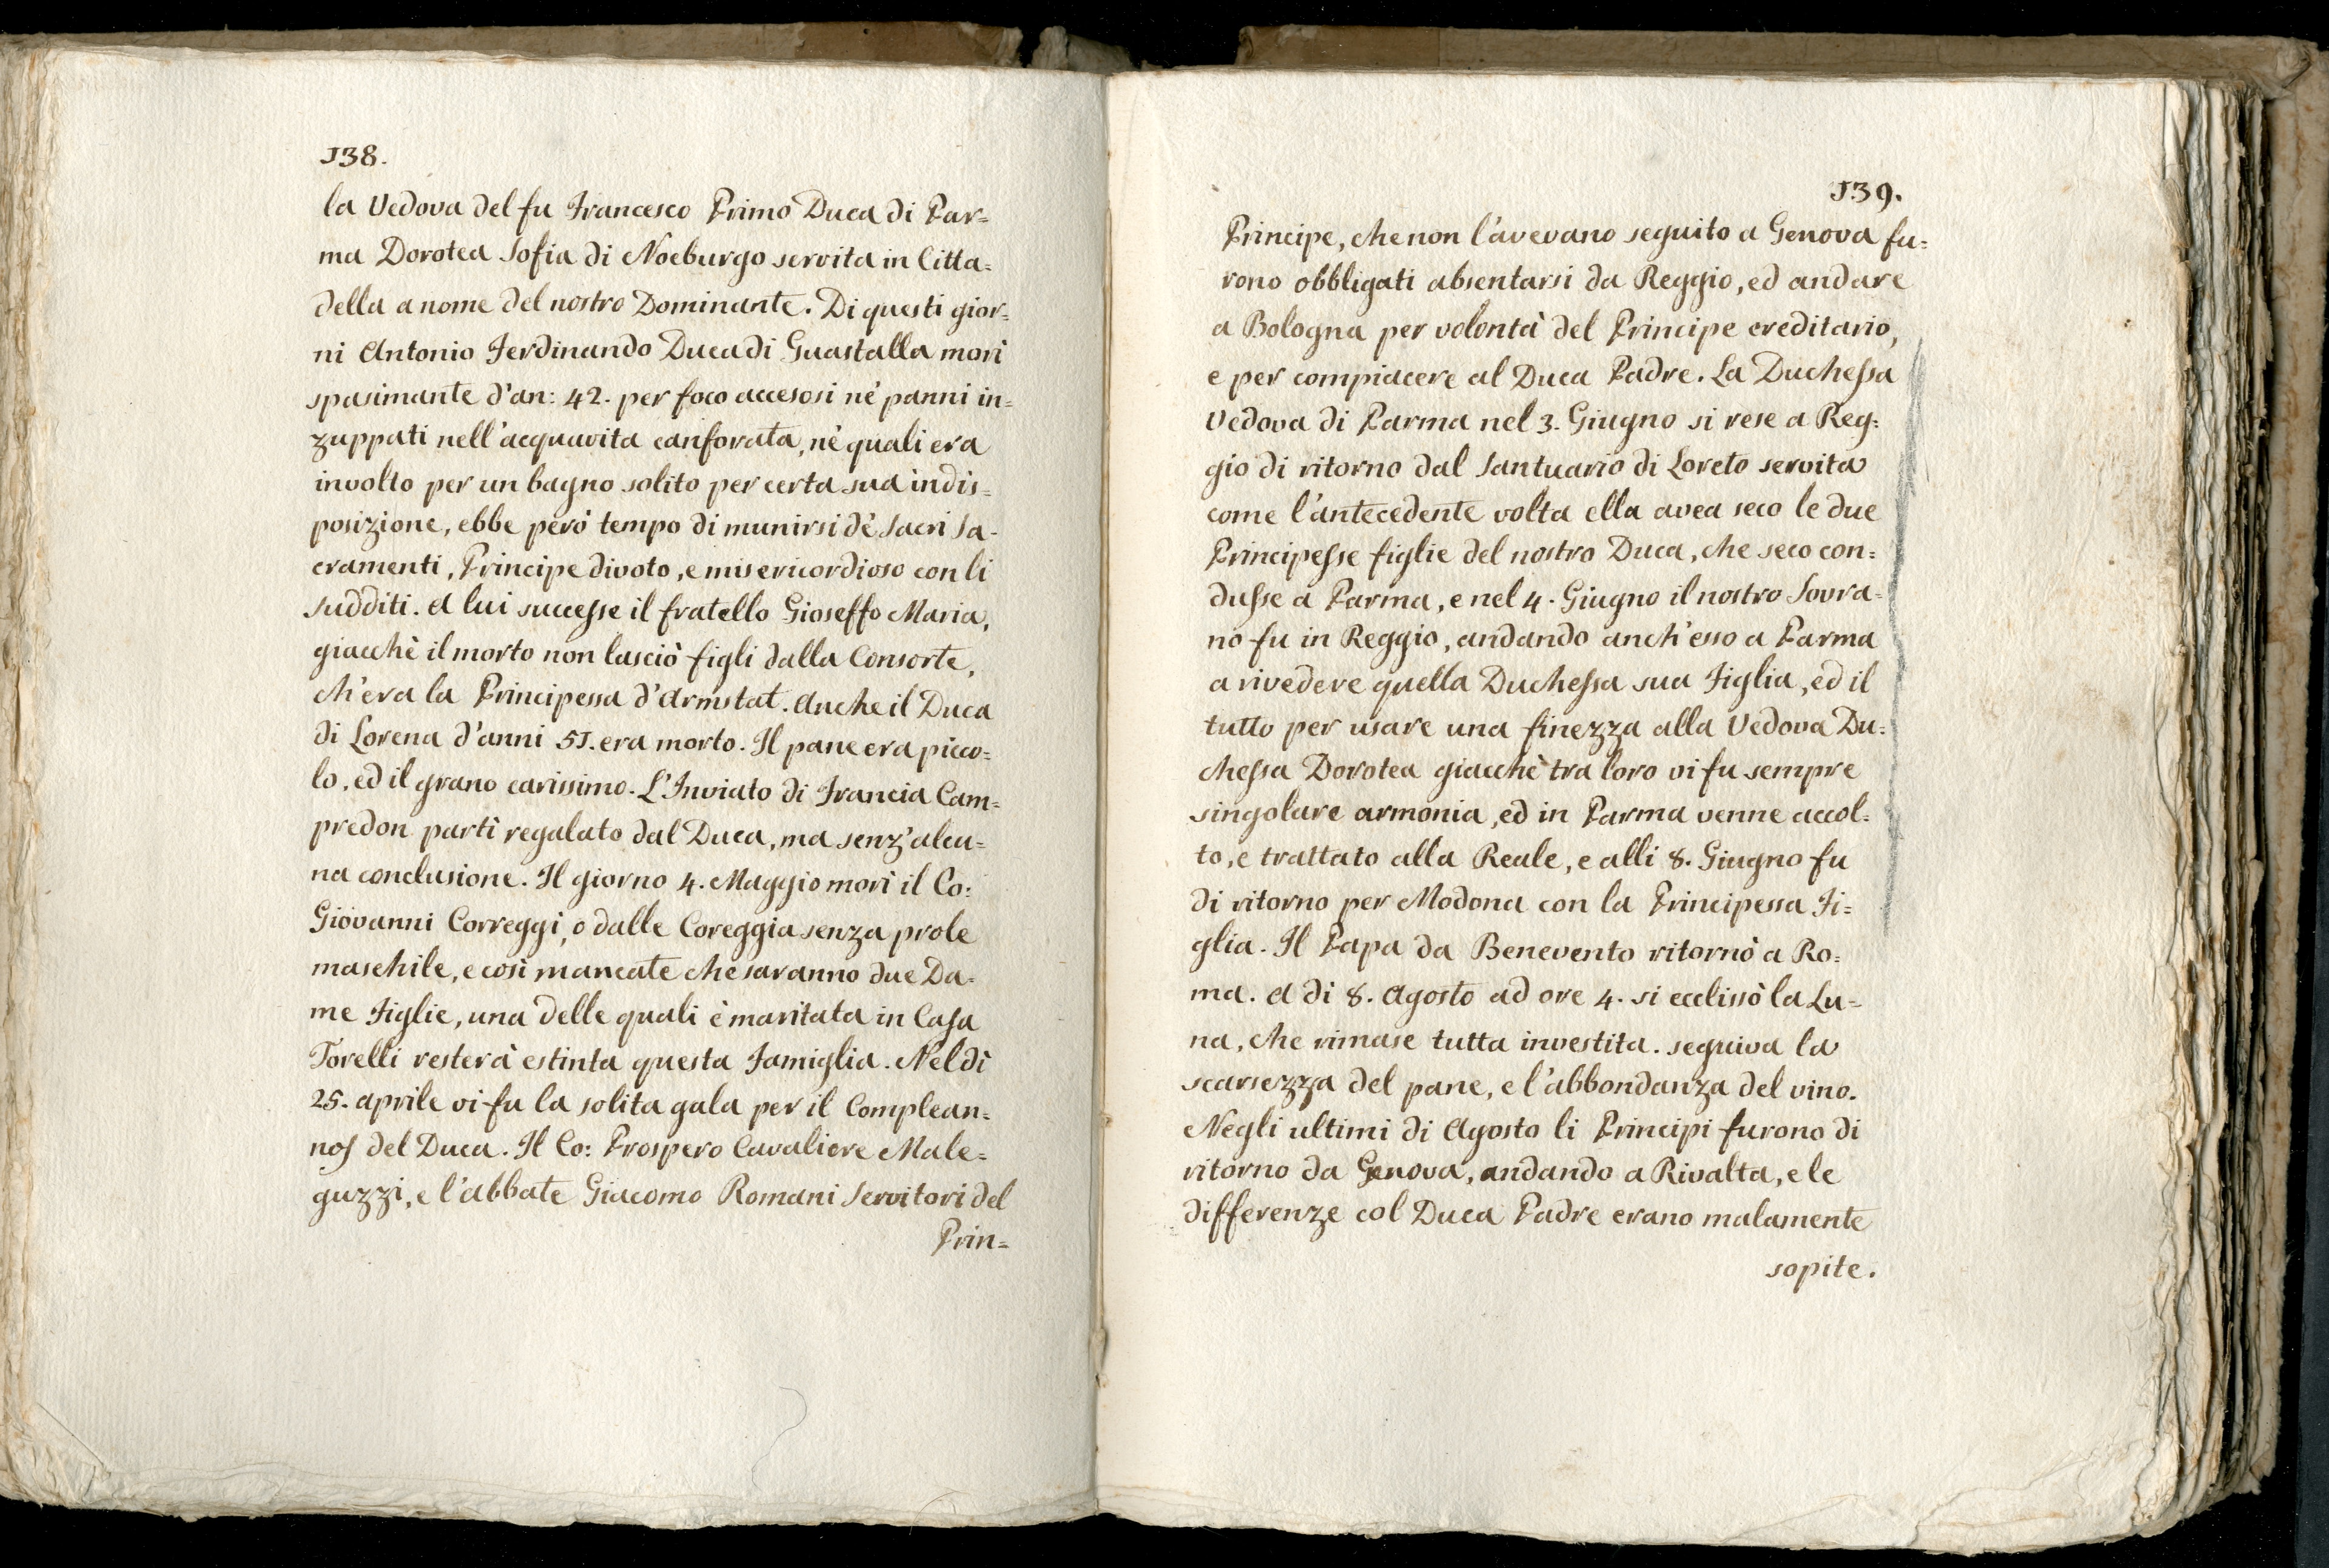 138.
la Vedova del fu Francesco Primo Duca di Par=
ma Dorotea Sofia di Noeburgo servita in Citta=
della a nome del nostro Dominante. Di questi gior=
ni Antonio Ferdinando Duca di Guastalla morì
spasimante d'an: 42. per foco accesosi nè panni in=
zuppati nell'acquavita canforata, nè quali era
involto per un bagno solito per certa sua indis=
posizione, ebbe però tempo di munirsi dè Sacri Sa=
cramenti, Principe divoto, e misericordioso con li
sudditi. A lui successe il fratello Gioseffo Maria,
giacchè il morto non lasciò figli dalla Consorte,
ch'era la Principessa d'Armstat. Anche il Duca
di Lorena d'anni 51. era morto. Il pane era picco=
lo, ed il grano carissimo. L'Inviato di Francia Cam=
predon partì regalato dal Duca, ma senz'alcu=
na conclusione. Il giorno 4. Maggio morì il Co:
Giovanni Correggi, o dalle Coreggia senza prole
maschile, e così mancate che saranno due Da=
me Figlie, una delle quali è maritata in Casa
Torelli resterà estinta questa Famiglia. Nel dì
25. aprile vi fu la solita gala per il Complean=
nos del Duca. Il Co: Prospero Cavaliere Male=
guzzi, e l'abbate Giacomo Romani Servitori del
Prin=
139.
Principe, che non l'avevano seguito a Genova fu=
rono obbligati absentarsi da Reggio, ed andare
a Bologna per volontà del Principe ereditario,
e per compiacere al Duca Padre. La Duchessa
Vedova di Parma nel 3. Giugno si rese a Reg=
gio di ritorno dal Santuario di Loreto servita
come l'antecedente volta ella avea seco le due
Principesse figlie del nostro Duca, che seco con=
dusse a Parma, e nel 4. Giugno il nostro Sovra=
no fu in Reggio, andando anch'esso a Parma
a rivedere quella Duchessa sua Figlia, ed il
tutto per usare una finezza alla Vedova Du=
chessa Dorotea giacchè tra loro vi fu sempre
singolare armonia, ed in Parma venne accol=
to, e trattato alla Reale, e alli 8. Giugno fu
di ritorno per Modona con la Principessa Fi=
glia. Il Papa da Benevento ritornò a Ro=
ma. A di 8. Agosto ad ore 4. si ecclissò la Lu=
na, che rimase tutta investita. seguiva la
scarsezza del pane, e l'abbondanza del vino.
Negli ultimi di Agosto li Principi furono di
ritorno da Genova, andando a Rivalta, e le
differenze col Duca Padre erano malamente
sopite.